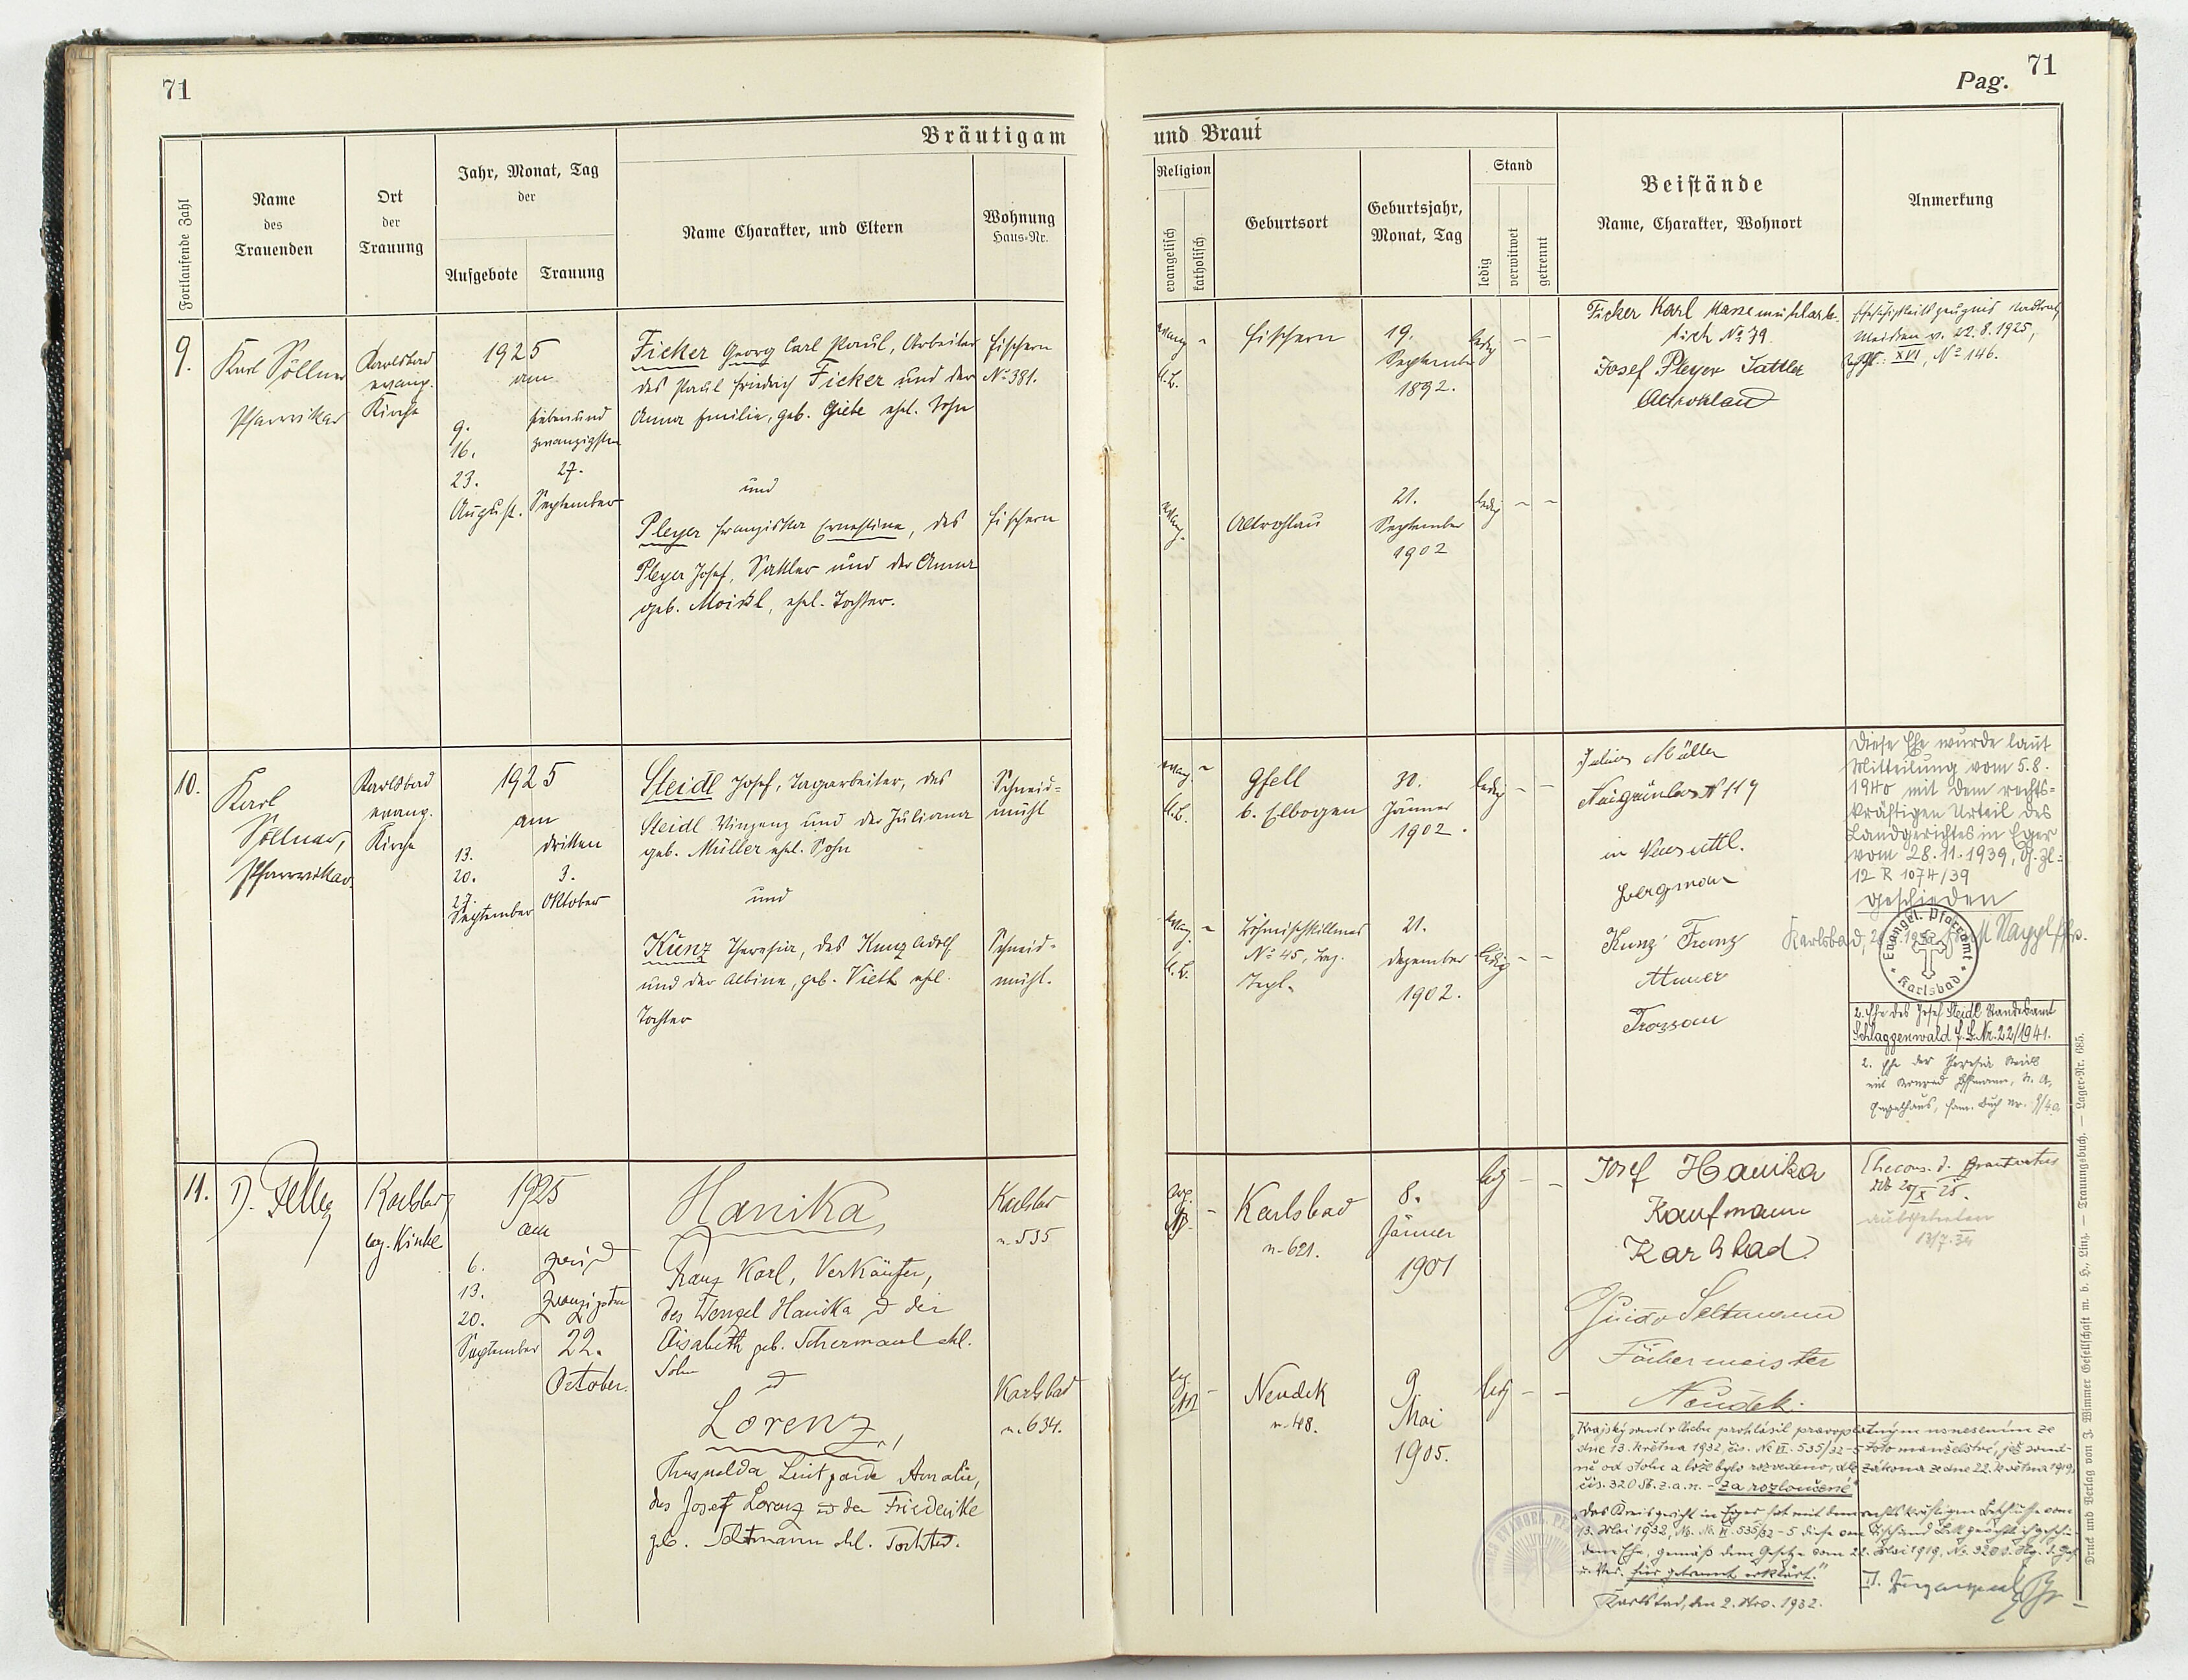 71
Pag. 71
Bräutigam und Braut
Fortlaufende Zahl
Name
des
Trauenden
Ort
der
Trauung
Jahr, Monat, Tag
der
Aufgebote
Trauung
Name Charakter, und Eltern
Wohnung
Haus-Nr.
Religion
evangelisch
katholisch
Geburtsort
Geburtsjahr,
Monat, Tag
Stand
ledig
verwitwet
getrennt
Beistände
Name, Charakter, Wohnort
Anmerkung
9.
Karl Söllner
Pfarrvikar
Karlsbad
evang.
Kirche
1925
am
9.
16.
23.
August.
siebenund
zwanzigsten
27.
September
Ficker Georg Carl Paul, Arbeiter
des Paul Friedrich Ficker und der
Anna Emilie, geb. Giebe ehel. Sohn
und
Pleyer Franziska Ernestine, des
Pleyer Josef, Sattler und der Anna
geb. Moissl, ehel. Tochter.
Fischern
No 381.
Fischern
evang.
A.B.
Fischern
19.
September
1892.
ledig
evang.
Altrohlau
21.
September
1902
ledig
Ficker Karl
No 79
Josef Pleyer Sattler
Altrohlau
v. 22.8.1925,
XVI, No 146.
10.
Karl
Söllner,
Pfarrvikar
Karlsbad
evang.
Kirche
1925
am
13.
20.
27.
September
dritten
3.
Oktober
Steidl Josef, Tagarbeiter, des
Steidl Vinzenz und der Juliana
geb. Müller ehel. Sohn
und
Kunz Theresia, des Kunz Adolf
und der Albine, geb. Vieth ehel.
Tochter
Schneid-
mühl
Schneid-
mühl.
evang.
A.B.
Gfell
b. Elbogen
30.
Jänner
1902.
ledig
evang.
A.B.
No 45, Bez.
Tepl.
21.
Dezember
1902.
ledig
Julius Müller
No 119
in Neusattl.
Bergman
Kunz Franz
Maurer
Trossau
Diese Ehe wurde laut
Mitteilung vom 5.8.
1940 mit dem rechts-
kräftigen Urteil des
Landgerichtes in Eger
vom 28.11.1939, G. Zl:
12 R 1074/39
geschieden
Karlsbad,
Evangel. Pfarramt
Karlsbad
2. Ehe des Josef Steidl Standesamt
Schlaggenwald F.B. Nr. 22/1941.
2. Ehe der Theresia Steidl
mit Konrad Hoffmann, St. A.
Engelhaus, Fam. Buch Nr.
11.
Karlsbad
ev. Kirche
1925
am
6.
13.
20.
September
zwei u
zwanzigsten
22.
October.
Hanika,
Franz Karl, Verkäufer,
des Wenzel Hanika u der
Elisabeth geb. Schermaul ehl.
Sohn
u
Lorenz,
Thusnelda Luitgarde Amalie,
des Josef Lorenz u der Friederike
geb. Seltmann ehl. Tochter.
Karlsbad
n. 535
Karlsbad
n. 634.
Karlsbad
n. 621.
8.
Jänner
1901
led
Neudek
n. 48.
9
Mai
1905.
led
Josef Hanika
Kaufmann
Karlsbad
Guido Seltmann
Färbermeister
Neudek.
Ehecons. d. Brautvaters
ddo 20/X 25.
ausgetreten
Krajský soud v Chebu prohlásil pravoplatným usnesením ze
dne 13. května 1932, čís. Nc VI. 535/32-5 toto manželství, jež soud-
ně od stolu a lože bylo rozvedeno, dle zákona ze dne 22. května 1919,
čís. 320 Sb. z. a n. - "za rozloučené"
"Das Kreisgericht in Eger hat mit dem rechtskräftigen Beschlusse vom
13. Mai 1932, No. Nc VI. 535/32-5 diese von Tisch und Bett gerichtlich geschie-
dene Ehe, gemäß dem Gesetze vom 22. Mai 1919, No. 320 S. d. G.
u. Ver. für getrennt erklärt."
Karlsbad, den 2. Nov. 1932.
Druck und Verlag von J. Wimmer Gesellschaft m. b. H., Linz. — Trauungsbuch. — Lager-Nr. 685.